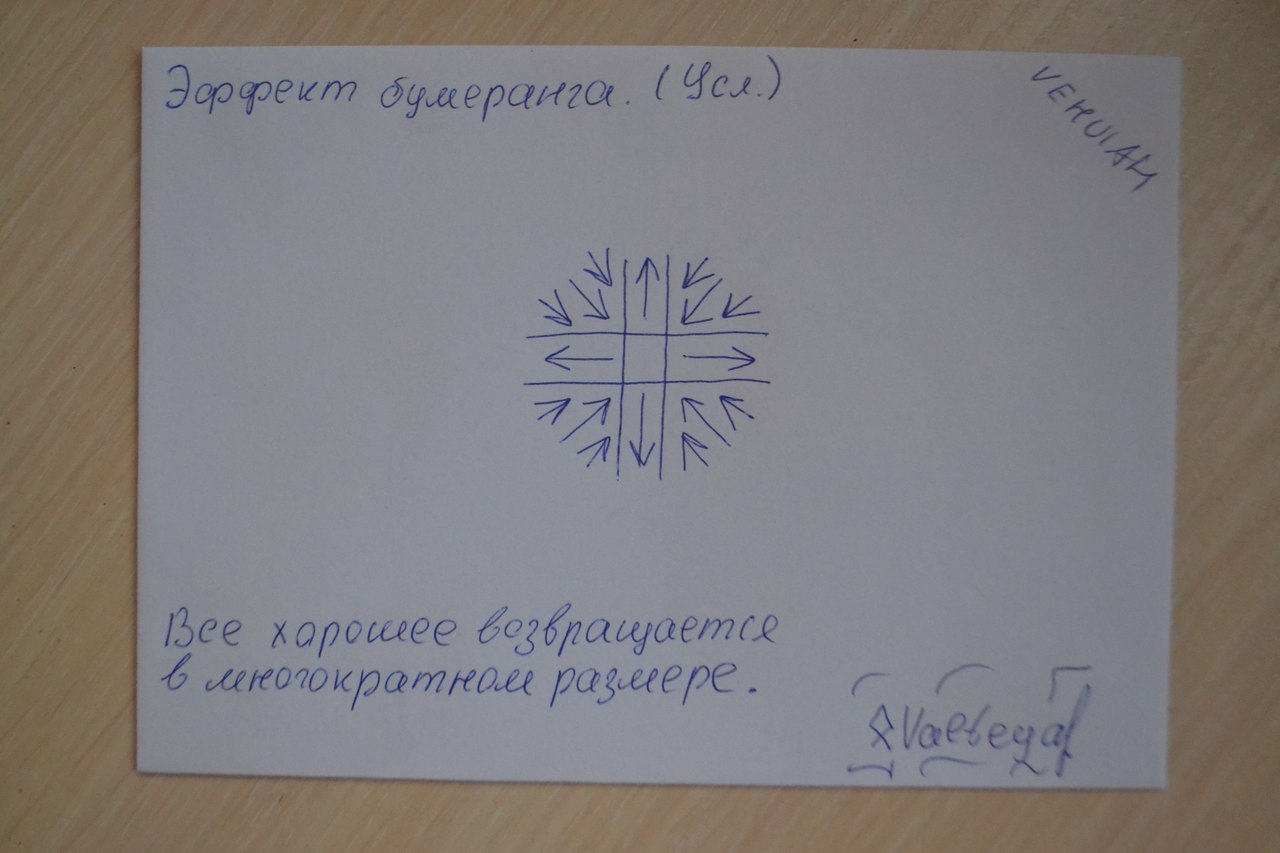 Эффект бумеранга. (Усл.)
VEHUIAH
Все хорошее возвращается
в многократном размере.